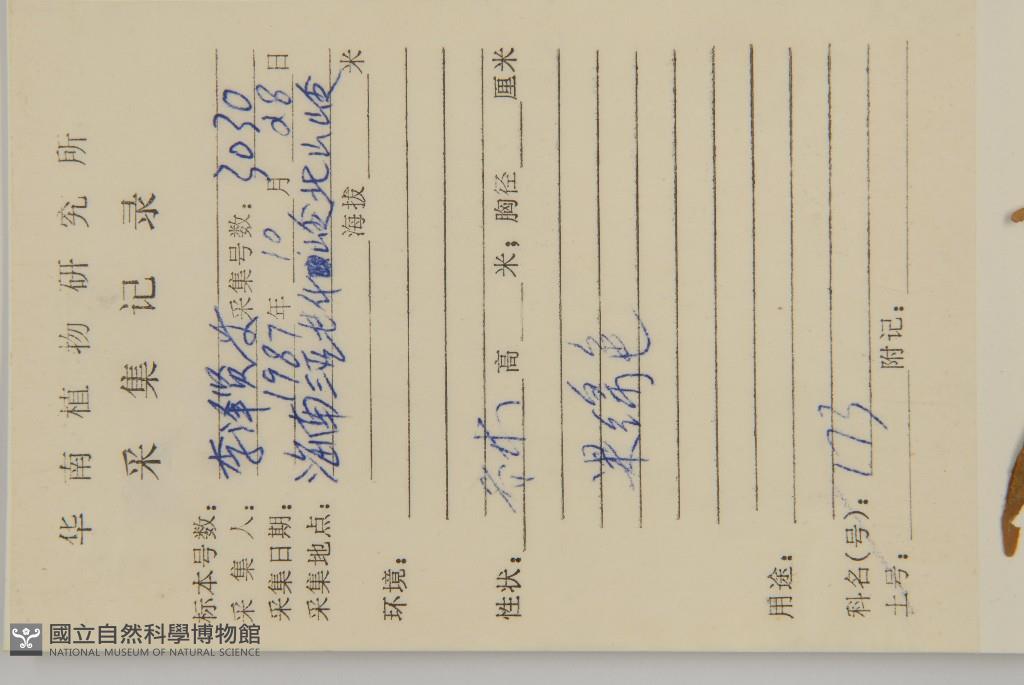 华南植物研究所
采集记录
标本号数：
采集人：李泽贤 采集号数：3030
采集日期：1987年10月28日
采集地点：海南三亚 北山岭
海拔 米
环境：
性状： 高 米；胸径 厘米
果绿色
用途：
科名(号)：173
土号： 附记：
國立自然科學博物館
NATIONAL MUSEUM OF NATURAL SCIENCE